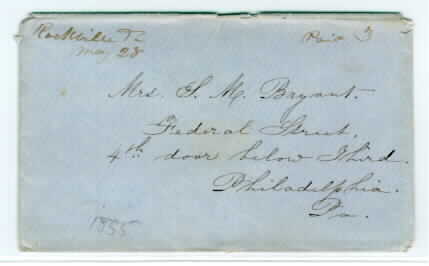 Rockville Ia
May 28
Paid 3
Mrs. S. M. Bryant.
Federal Street.
4th door below Third.
Philadelphia.
Pa.
1855